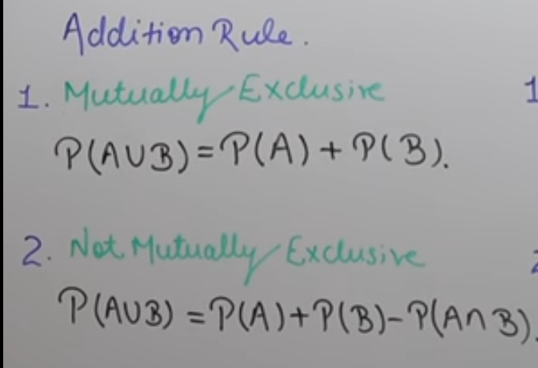 Addition Rule.
1. Mutually Exclusive
P(A∪B)=P(A)+P(B).
2. Not Mutually Exclusive
P(A∪B)=P(A)+P(B)-P(A∩B).
1